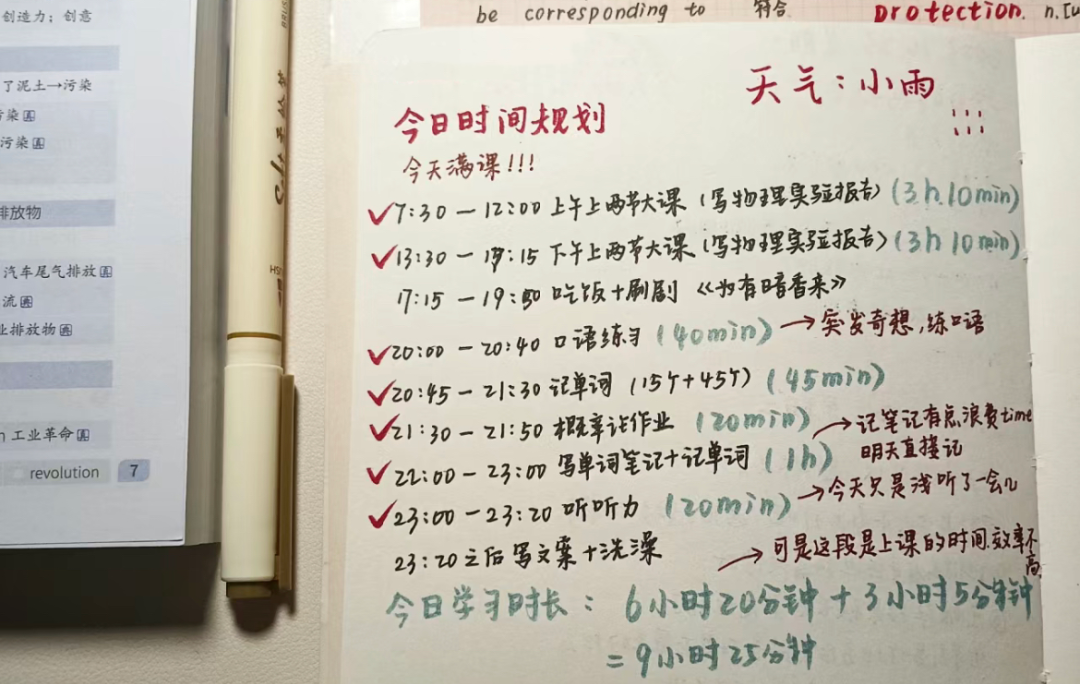 创造力；创意
了泥土→污染
污染
污染
排放物
汽车尾气排放
流
业排放物
工业革命
revolution 7
be corresponding to 符合
protection. n.
天气：小雨
今日时间规划
今天满课!!!
7:30 — 12:00 上午上两节大课（写物理实验报告）(3h 10min)
13:30 — 17:15 下午上两节大课（写物理实验报告）(3h 10min)
17:15 — 19:50 吃饭+刷剧 《为有暗香来》
20:00 — 20:40 口语练习 (40min) → 突发奇想，练口语
20:45 — 21:30 记单词 (15个+45个) (45min)
21:30 — 21:50 概率论作业 (20min)
→ 记笔记有点浪费time
明天直接记
22:00 — 23:00 写单词笔记+记单词 (1h)
23:00 — 23:20 听听力 (20min) → 今天只是浅听了一会儿
23:20 之后 写文案+洗澡
→ 可是这段是上课的时间.效率不高
今日学习时长： 6小时20分钟 + 3小时5分钟
= 9小时25分钟